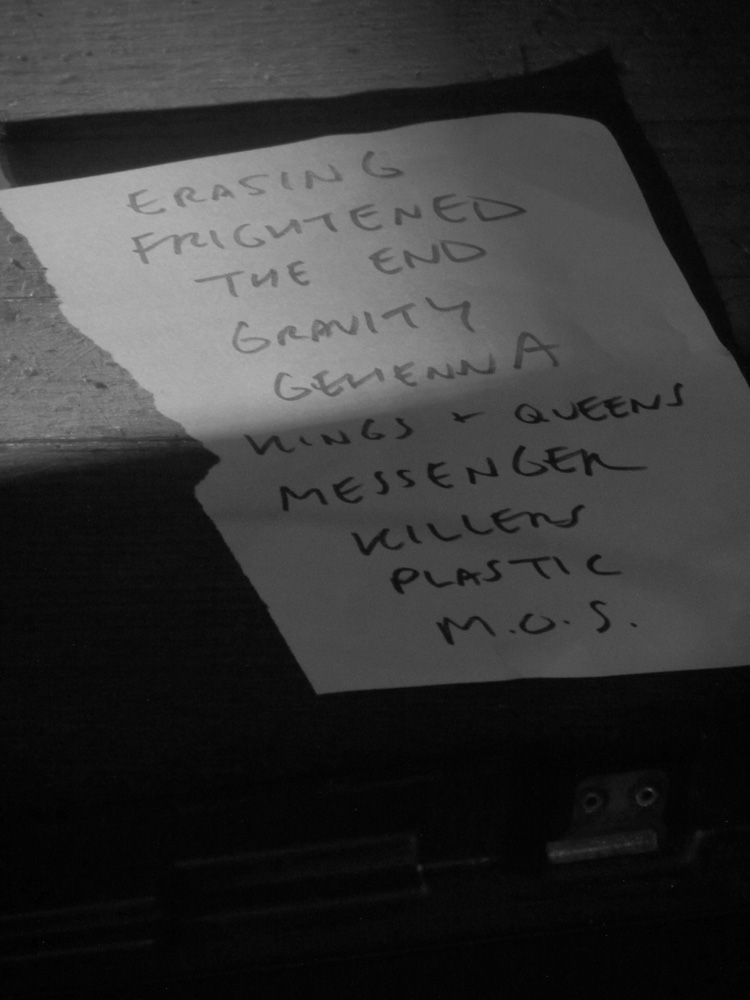 ERASING
FRIGHTENED
THE END
GRAVITY
GEHENNA
KINGS + QUEENS
MESSENGER
KILLERS
PLASTIC
M.O.S.